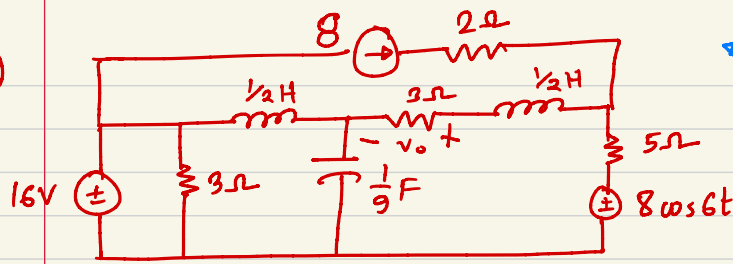 )
8
2Ω
½H
3Ω
½H
- v₀ +
5Ω
16V
±
3Ω
1/9 F
±
8cos6t